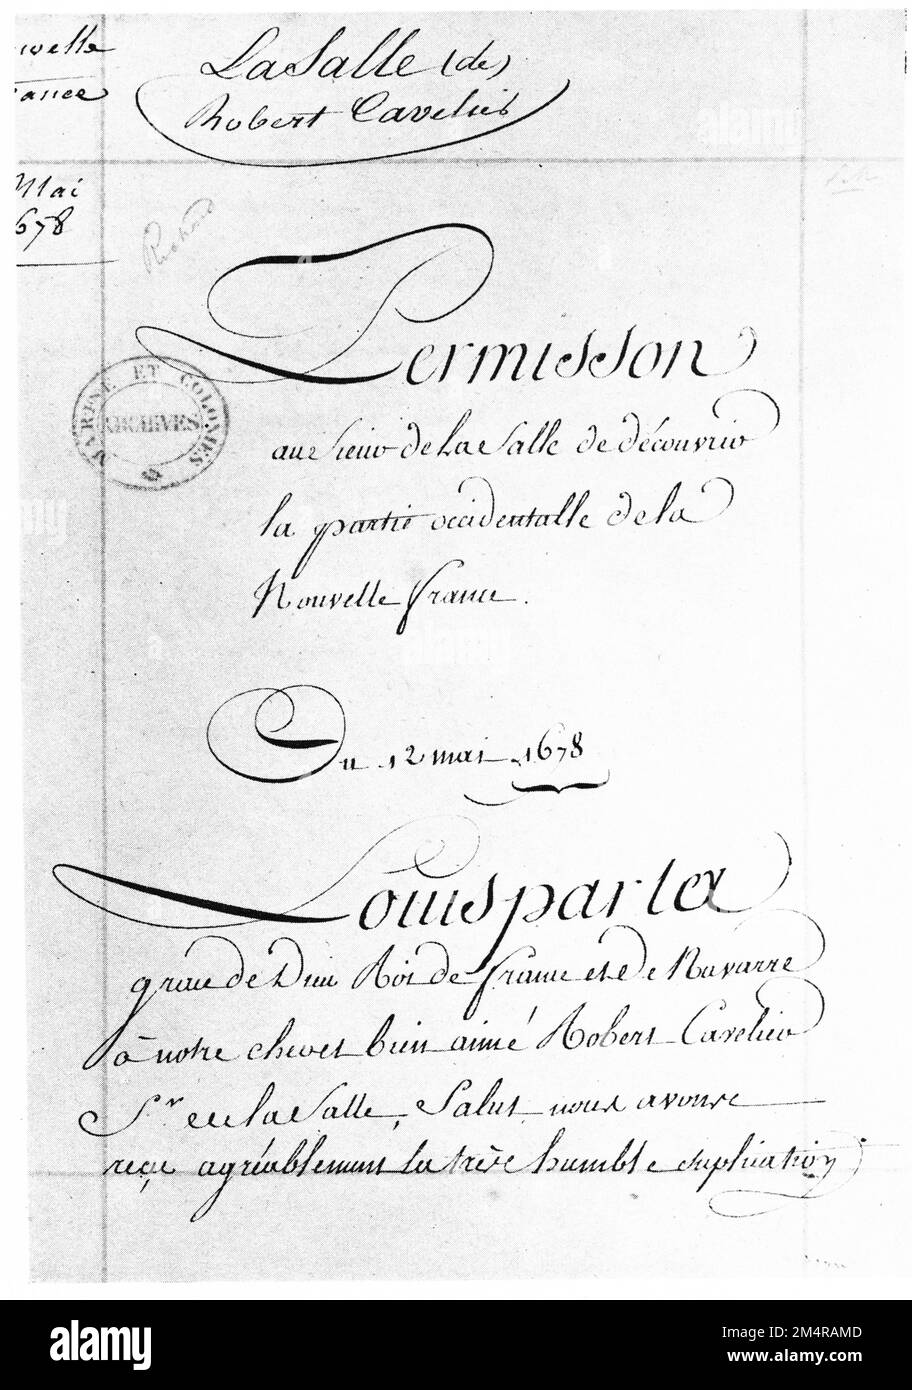 La Salle (de)
Robert Cavelier
ouvelle
rance
Mai
1678
Richard
MARINE ET COLONIES
ARCHIVES
Permisson
au Sieur de La Salle de découvrir
la partie occidentalle de la
Nouvelle france.
Du 12 mai 1678
Louis par la
grace de Dieu Roi de france et de Navarre
à notre cher et bien aimé Robert Cavelier
Sr. de la Salle, Salut, nous avons
reçu agréablement la très humble suplication
alamy
Image ID: 2M4RAMD
www.alamy.com